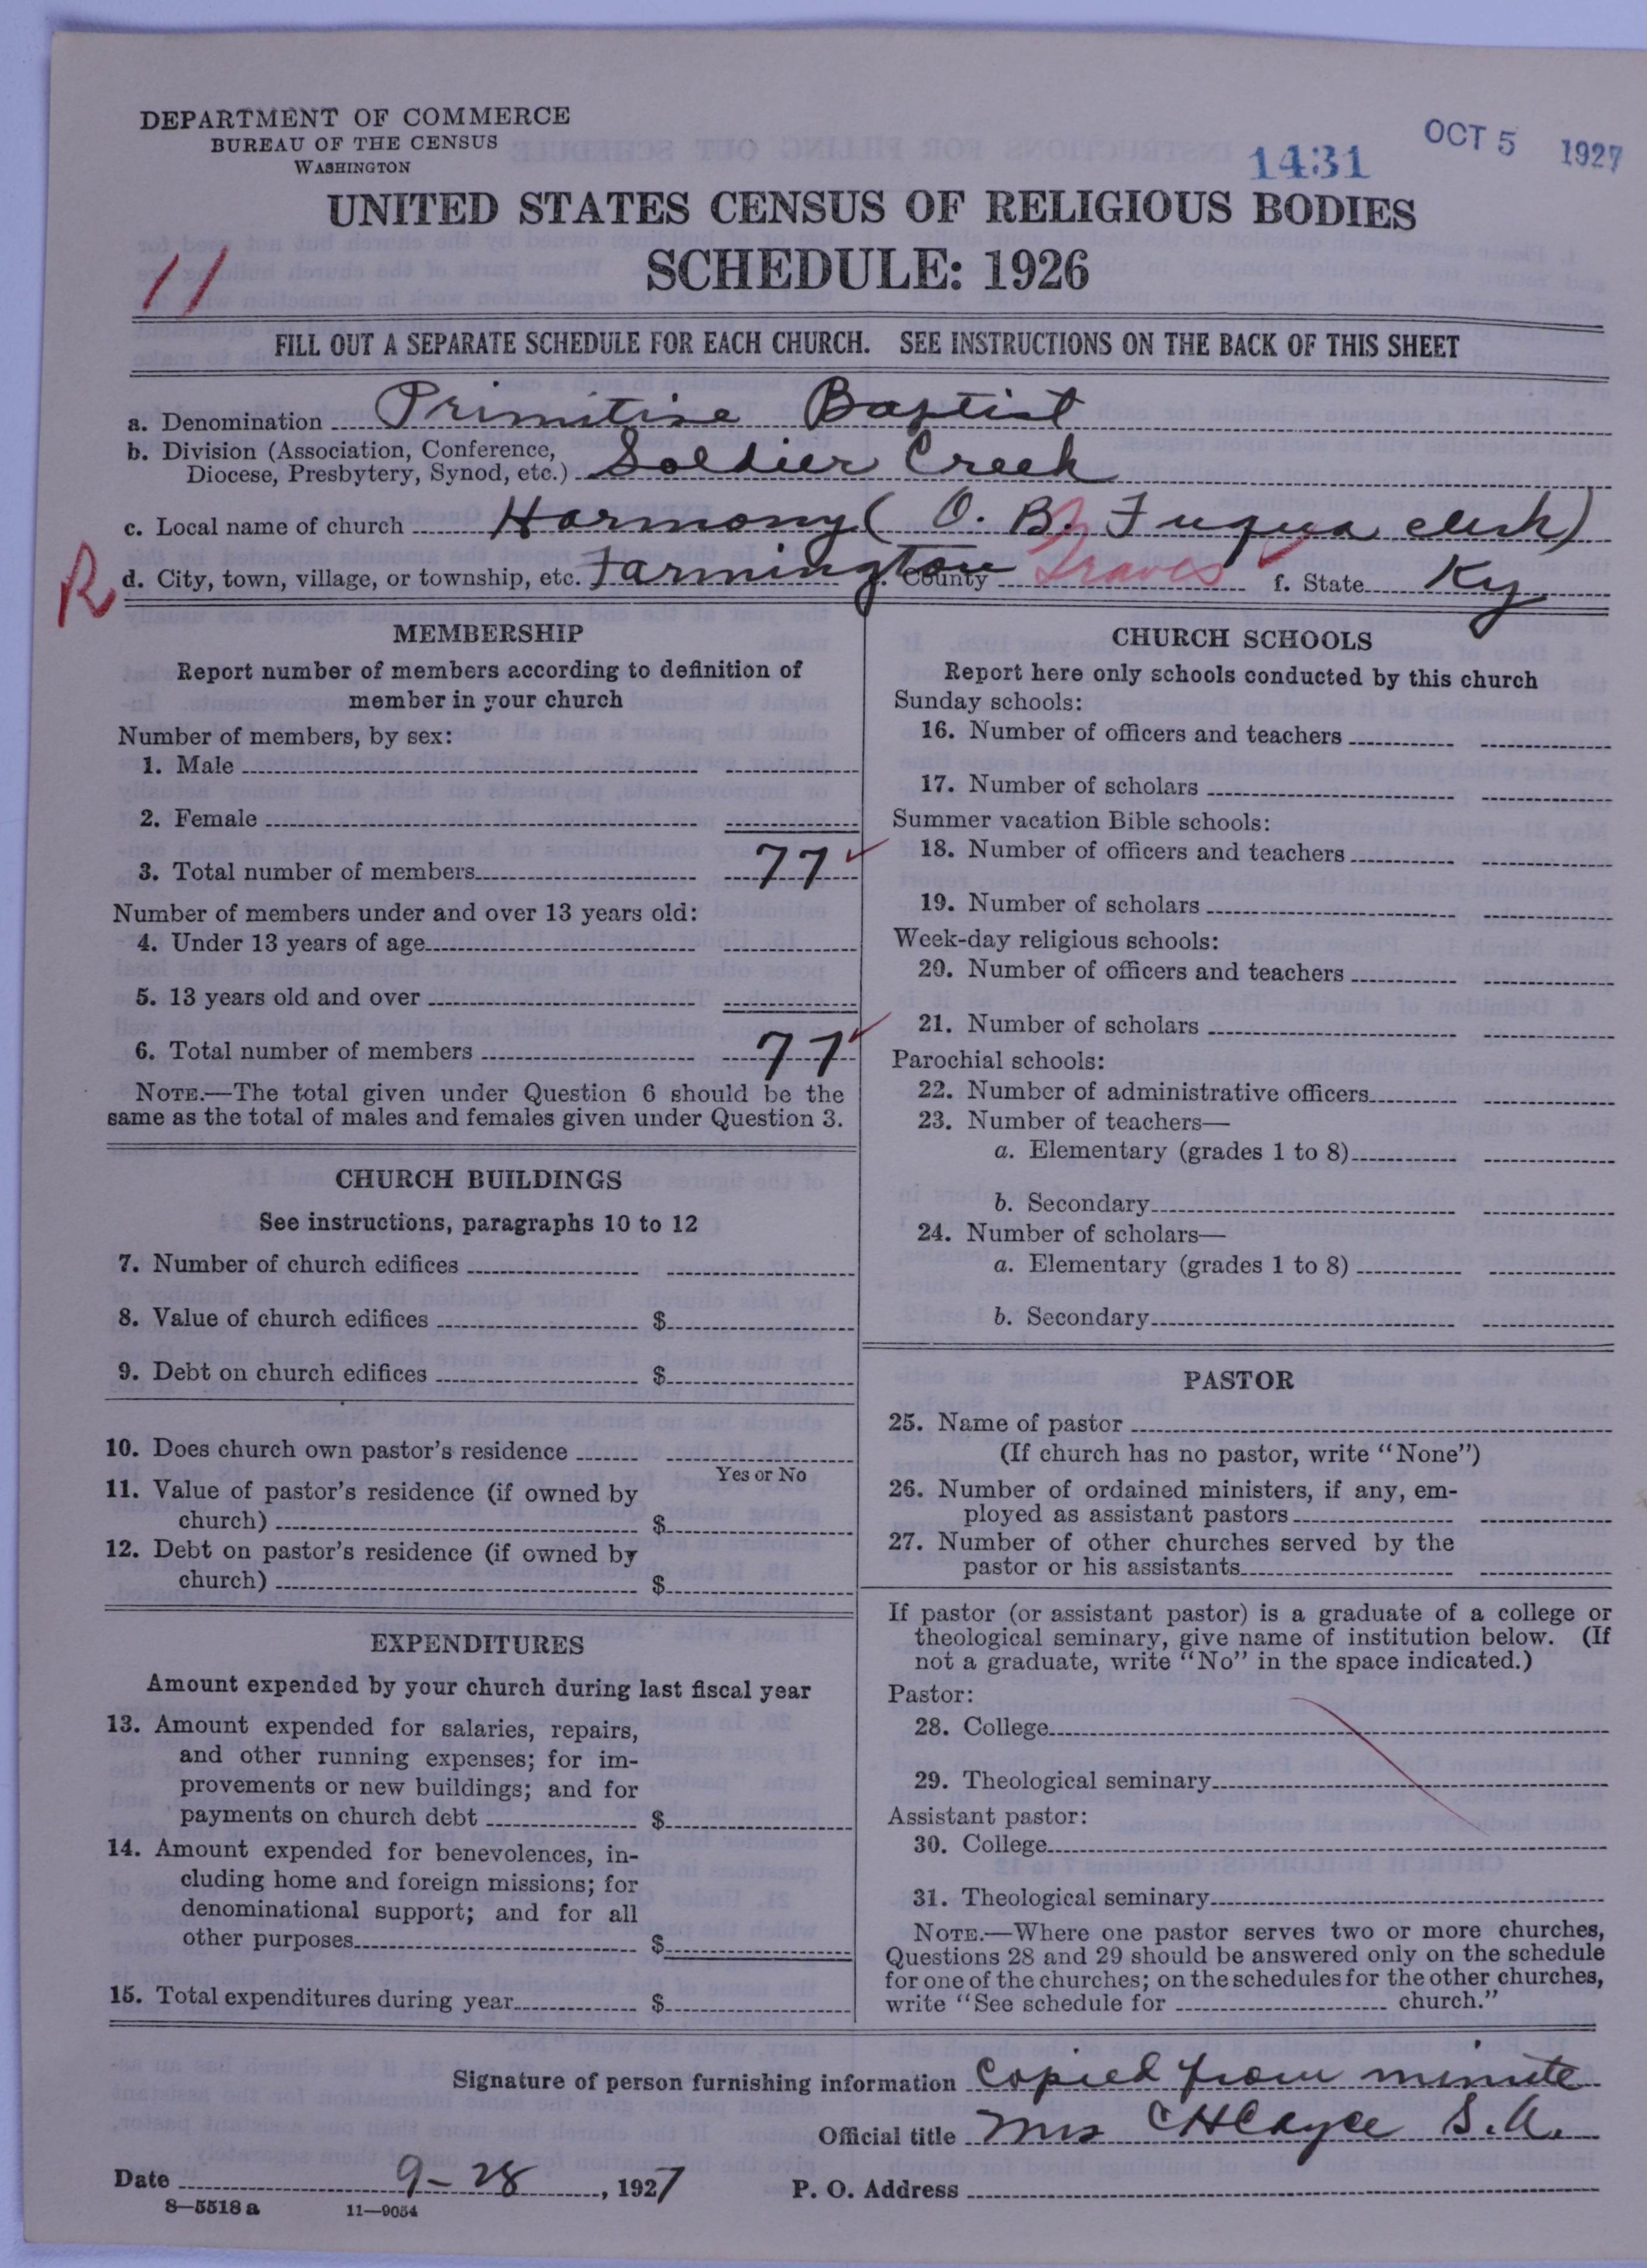 DEPARTMENT OF COMMERCE
BUREAU OF THE CENSUS
WASHINGTON
1431
OCT 5 1927
UNITED STATES CENSUS OF RELIGIOUS BODIES
SCHEDULE: 1926
11
FILL OUT A SEPARATE SCHEDULE FOR EACH CHURCH. SEE INSTRUCTIONS ON THE BACK OF THIS SHEET
a. Denomination Primitive Baptist
b. Division (Association, Conference,
Diocese, Presbytery, Synod, etc.) Soldier Creek
c. Local name of church Harmony (O. B. Fuqua clerk)
R
d. City, town, village, or township, etc. Farmington e. County Graves f. State Ky
MEMBERSHIP
Report number of members according to definition of
member in your church
Number of members, by sex:
1. Male
2. Female
3. Total number of members 77
Number of members under and over 13 years old:
4. Under 13 years of age
5. 13 years old and over
6. Total number of members 77
NOTE.—The total given under Question 6 should be the
same as the total of males and females given under Question 3.
CHURCH BUILDINGS
See instructions, paragraphs 10 to 12
7. Number of church edifices
8. Value of church edifices $
9. Debt on church edifices $
10. Does church own pastor's residence
Yes or No
11. Value of pastor's residence (if owned by
church) $
12. Debt on pastor's residence (if owned by
church) $
EXPENDITURES
Amount expended by your church during last fiscal year
13. Amount expended for salaries, repairs,
and other running expenses; for im-
provements or new buildings; and for
payments on church debt $
14. Amount expended for benevolences, in-
cluding home and foreign missions; for
denominational support; and for all
other purposes $
15. Total expenditures during year $
CHURCH SCHOOLS
Report here only schools conducted by this church
Sunday schools:
16. Number of officers and teachers
17. Number of scholars
Summer vacation Bible schools:
18. Number of officers and teachers
19. Number of scholars
Week-day religious schools:
20. Number of officers and teachers
21. Number of scholars
Parochial schools:
22. Number of administrative officers
23. Number of teachers—
a. Elementary (grades 1 to 8)
b. Secondary
24. Number of scholars—
a. Elementary (grades 1 to 8)
b. Secondary
PASTOR
25. Name of pastor
(If church has no pastor, write "None")
26. Number of ordained ministers, if any, em-
ployed as assistant pastors
27. Number of other churches served by the
pastor or his assistants
If pastor (or assistant pastor) is a graduate of a college or
theological seminary, give name of institution below. (If
not a graduate, write "No" in the space indicated.)
Pastor:
28. College
29. Theological seminary
Assistant pastor:
30. College
31. Theological seminary
NOTE.—Where one pastor serves two or more churches,
Questions 28 and 29 should be answered only on the schedule
for one of the churches; on the schedules for the other churches,
write "See schedule for church."
Signature of person furnishing information Copied from minute
Official title Mrs C H Cayce S.A.
Date 9-28, 1927 P. O. Address
8—5518 a 11—9054